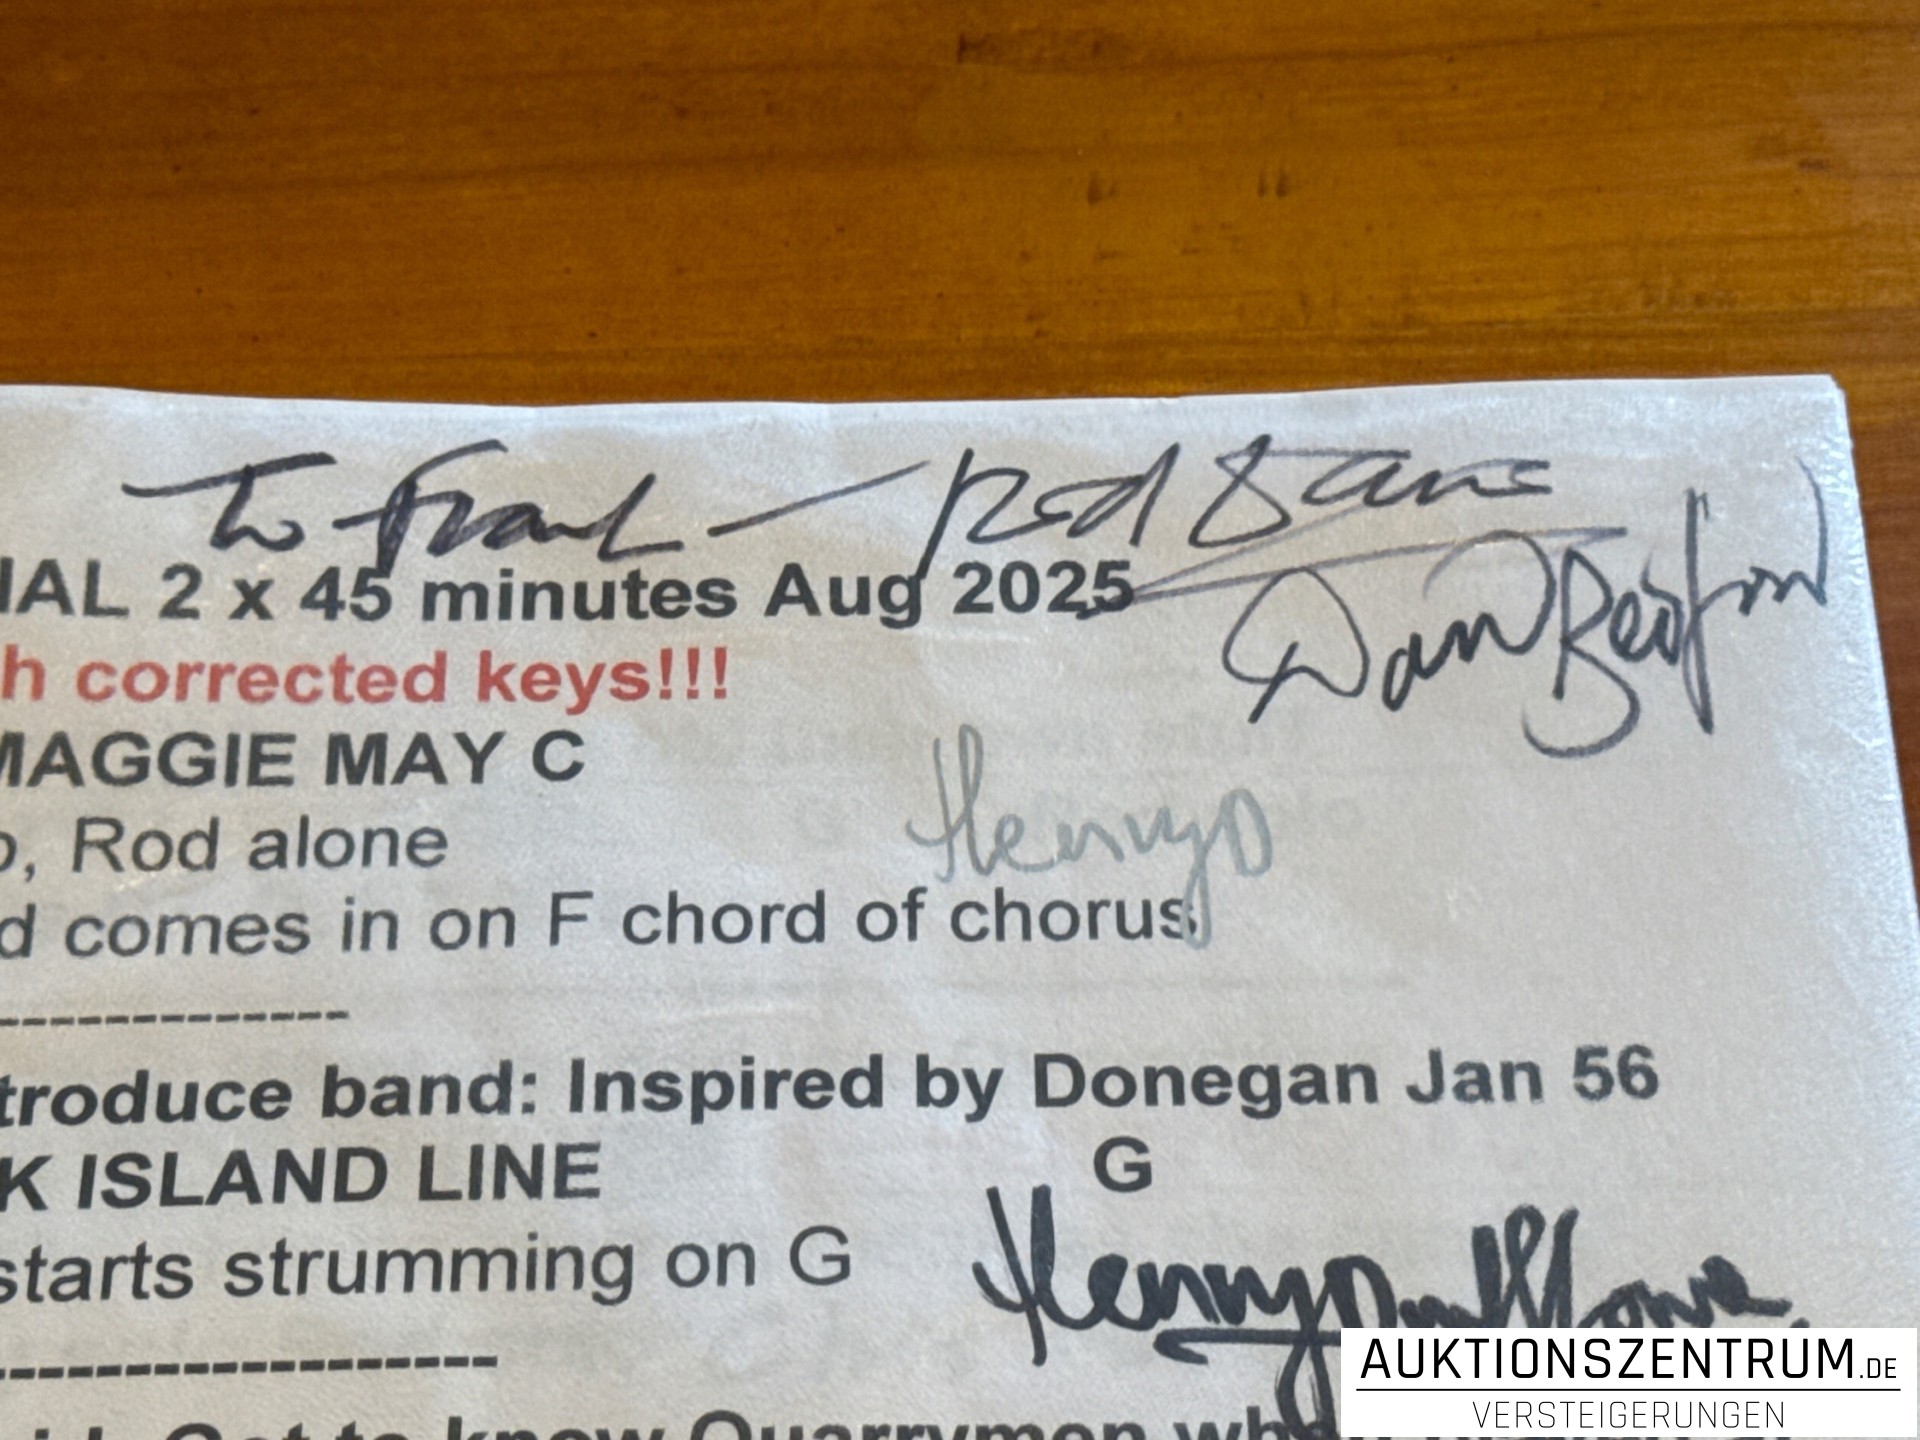 To Frank — Rod Davis
IAL 2 x 45 minutes Aug 2025
David Bedford
h corrected keys!!!
MAGGIE MAY C
o, Rod alone
Henry D
d comes in on F chord of chorus
-------------
troduce band: Inspired by Donegan Jan 56
K ISLAND LINE G
starts strumming on G
Henry
------------------
Got to know Quarrymen when
AUKTIONSZENTRUM.DE
VERSTEIGERUNGEN